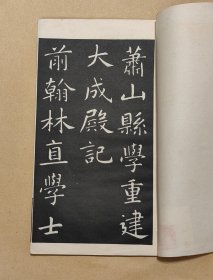 蕭山縣學重建
大成殿記
前翰林直學士